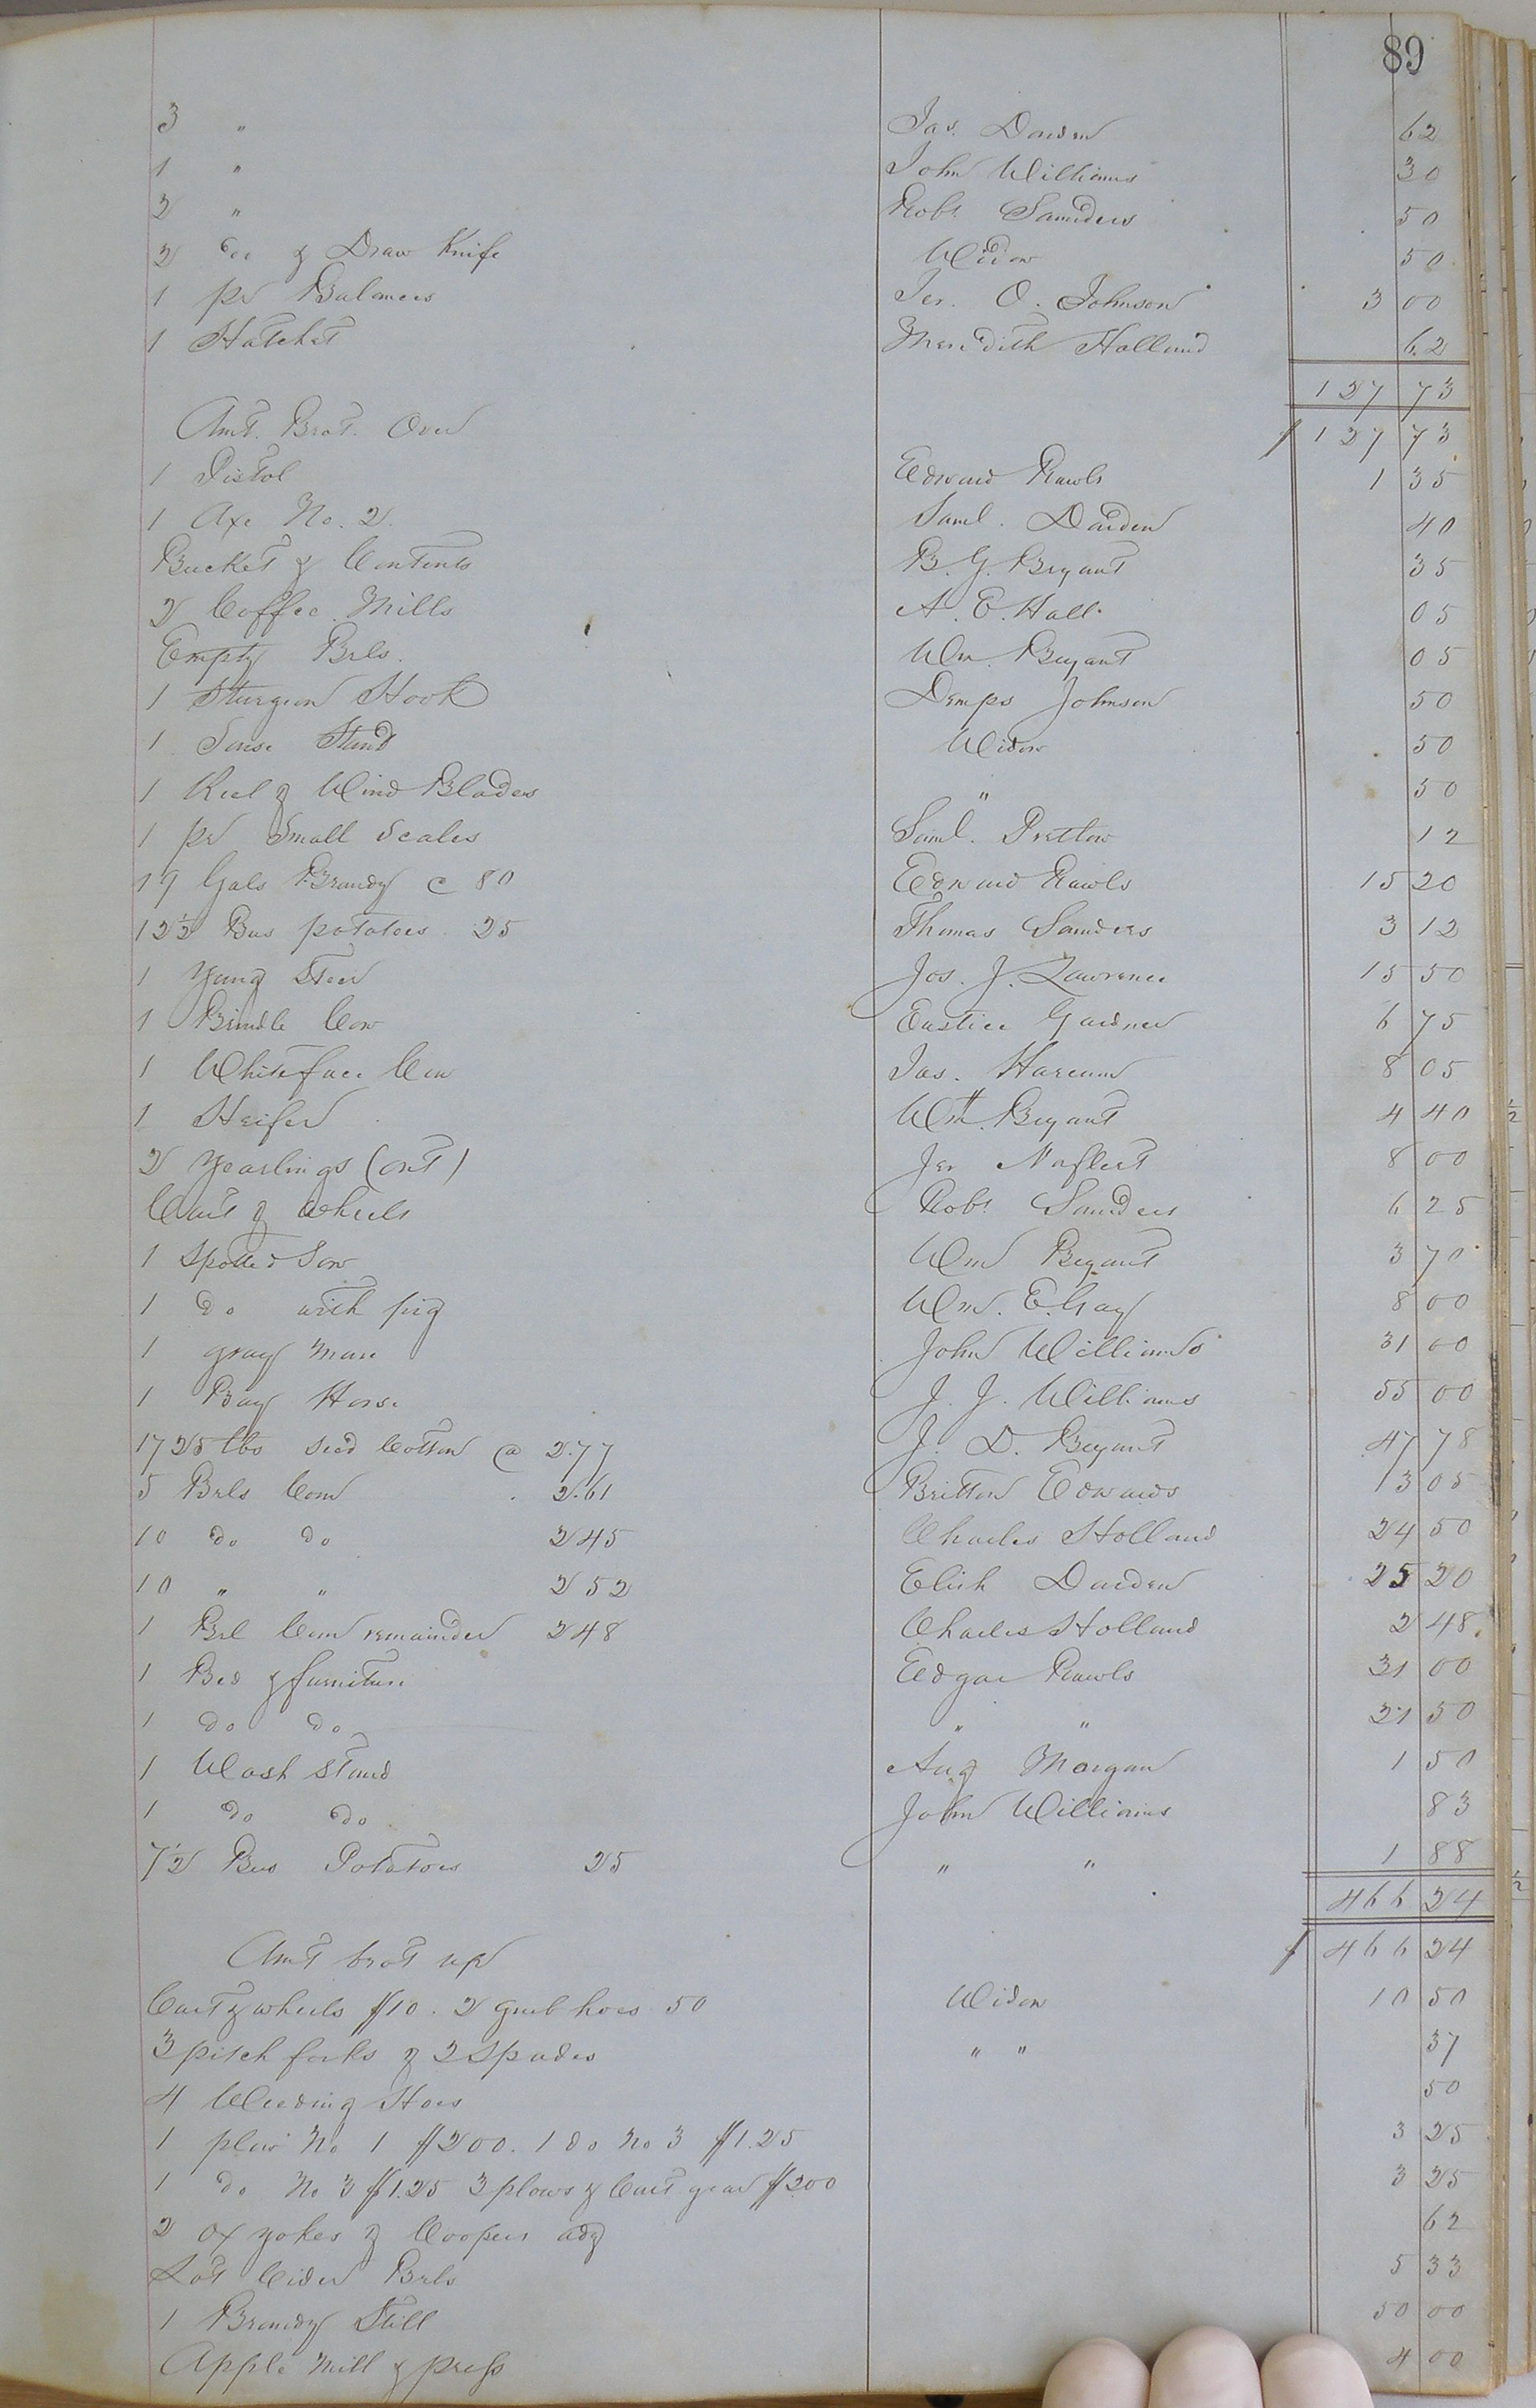 89
3 " Jas. Darden 62
1 " John Williams 30
2 " Robt Saunders 50
2 do & Draw Knife Widow 50
1 pr Balances Jer. O. Johnson 3 00
1 Hatchet Meredith Holland 62
127 73
Amt. Brot. Over $127 73
1 Pistol Edward Rawls 1 35
1 Axe No. 2. Saml. Darden 40
Bucket & Contents B. G. Bryant 35
2 Coffee Mills A. E. Hall 05
Empty Brls. Wm. Bryant 05
1 Sturgeon Hook Demps Johnson 50
1 Stand Widow 50
1 Reel & Wind Blades " 50
1 pr Small Scales Saml. Pretlow 12
19 Gals Brandy c 80 Edward Rawls 15 20
12½ Bus potatoes 25 Thomas Saunders 3 12
1 Yung Steer Jos. J. Lawrence 15 50
1 Brindle Cow Eastice Gardner 6 75
1 Whiteface Cow Jas. Harcum 8 05
1 Heifer Wm. Bryant 4 40
2 Yearlings (out) Jer Norfleet 8 00
Cart & wheels Robt Saunders 6 25
1 Spotted Sow Wm Bryant 3 70
1 do with pig Wm. E. Gay 8 00
1 gray Mare John Williams 31 00
1 Bay Horse J. J. Williams 55 00
1725 lbs seed Cotton @ 2.77 J. D. Bryant 47 78
5 Brls Corn 2.61 Britton Edwards 13 05
10 do do 2 45 Charles Holland 24 50
10 " " 2 52 Elish Darden 25 20
1 Brl Corn remainder 2 48 Charles Holland 2 48
1 Bed & furniture Edgar Rawls 31 00
1 do do " " 21 50
1 Wash stand Aug Morgan 1 50
1 do do John Williams 83
7½ Bus Potatoes 25 " " 1 88
466 24
Amt brot up $466 24
Cart & wheels $10. 2 grub hoes 50 Widow 10 50
3 pitch forks & 2 Spades " " 37
4 Weeding Hoes 50
1 plow No 1 $2 00. 1 do No 3 $1.25 3 25
1 do No 3 $1.25 3 plows & Cart gear $2.00 3 25
2 ox yokes & Coopers adz 62
Lot Cider Brls 5 33
1 Brandy Still 50 00
Apple Mill & press 4 00